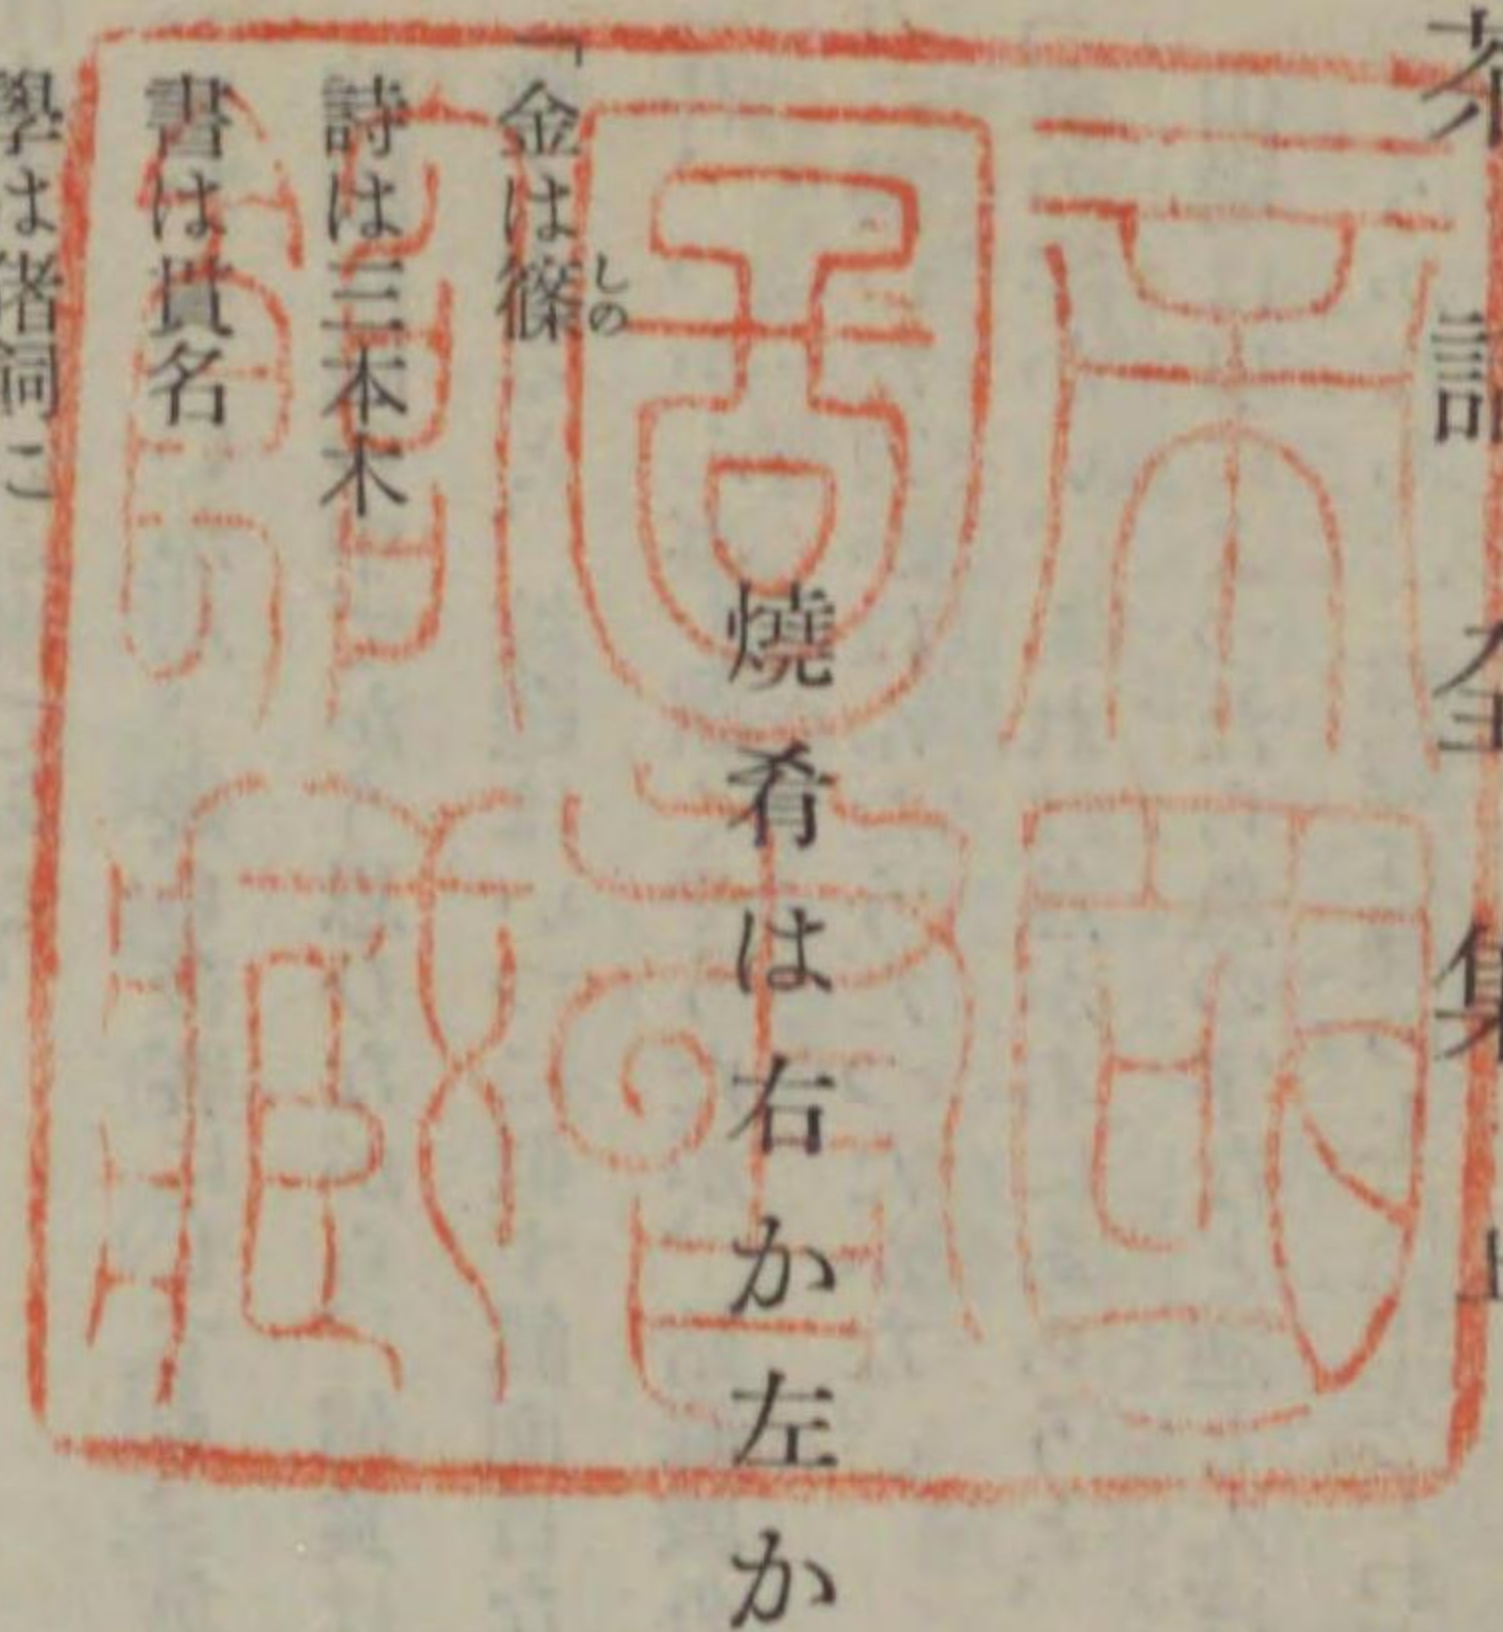 茶話全集上
燒肴は右か左か
「金は篠
しの
詩は三本木
書は貫名
學は猪飼に
帝國
圖書
館藏